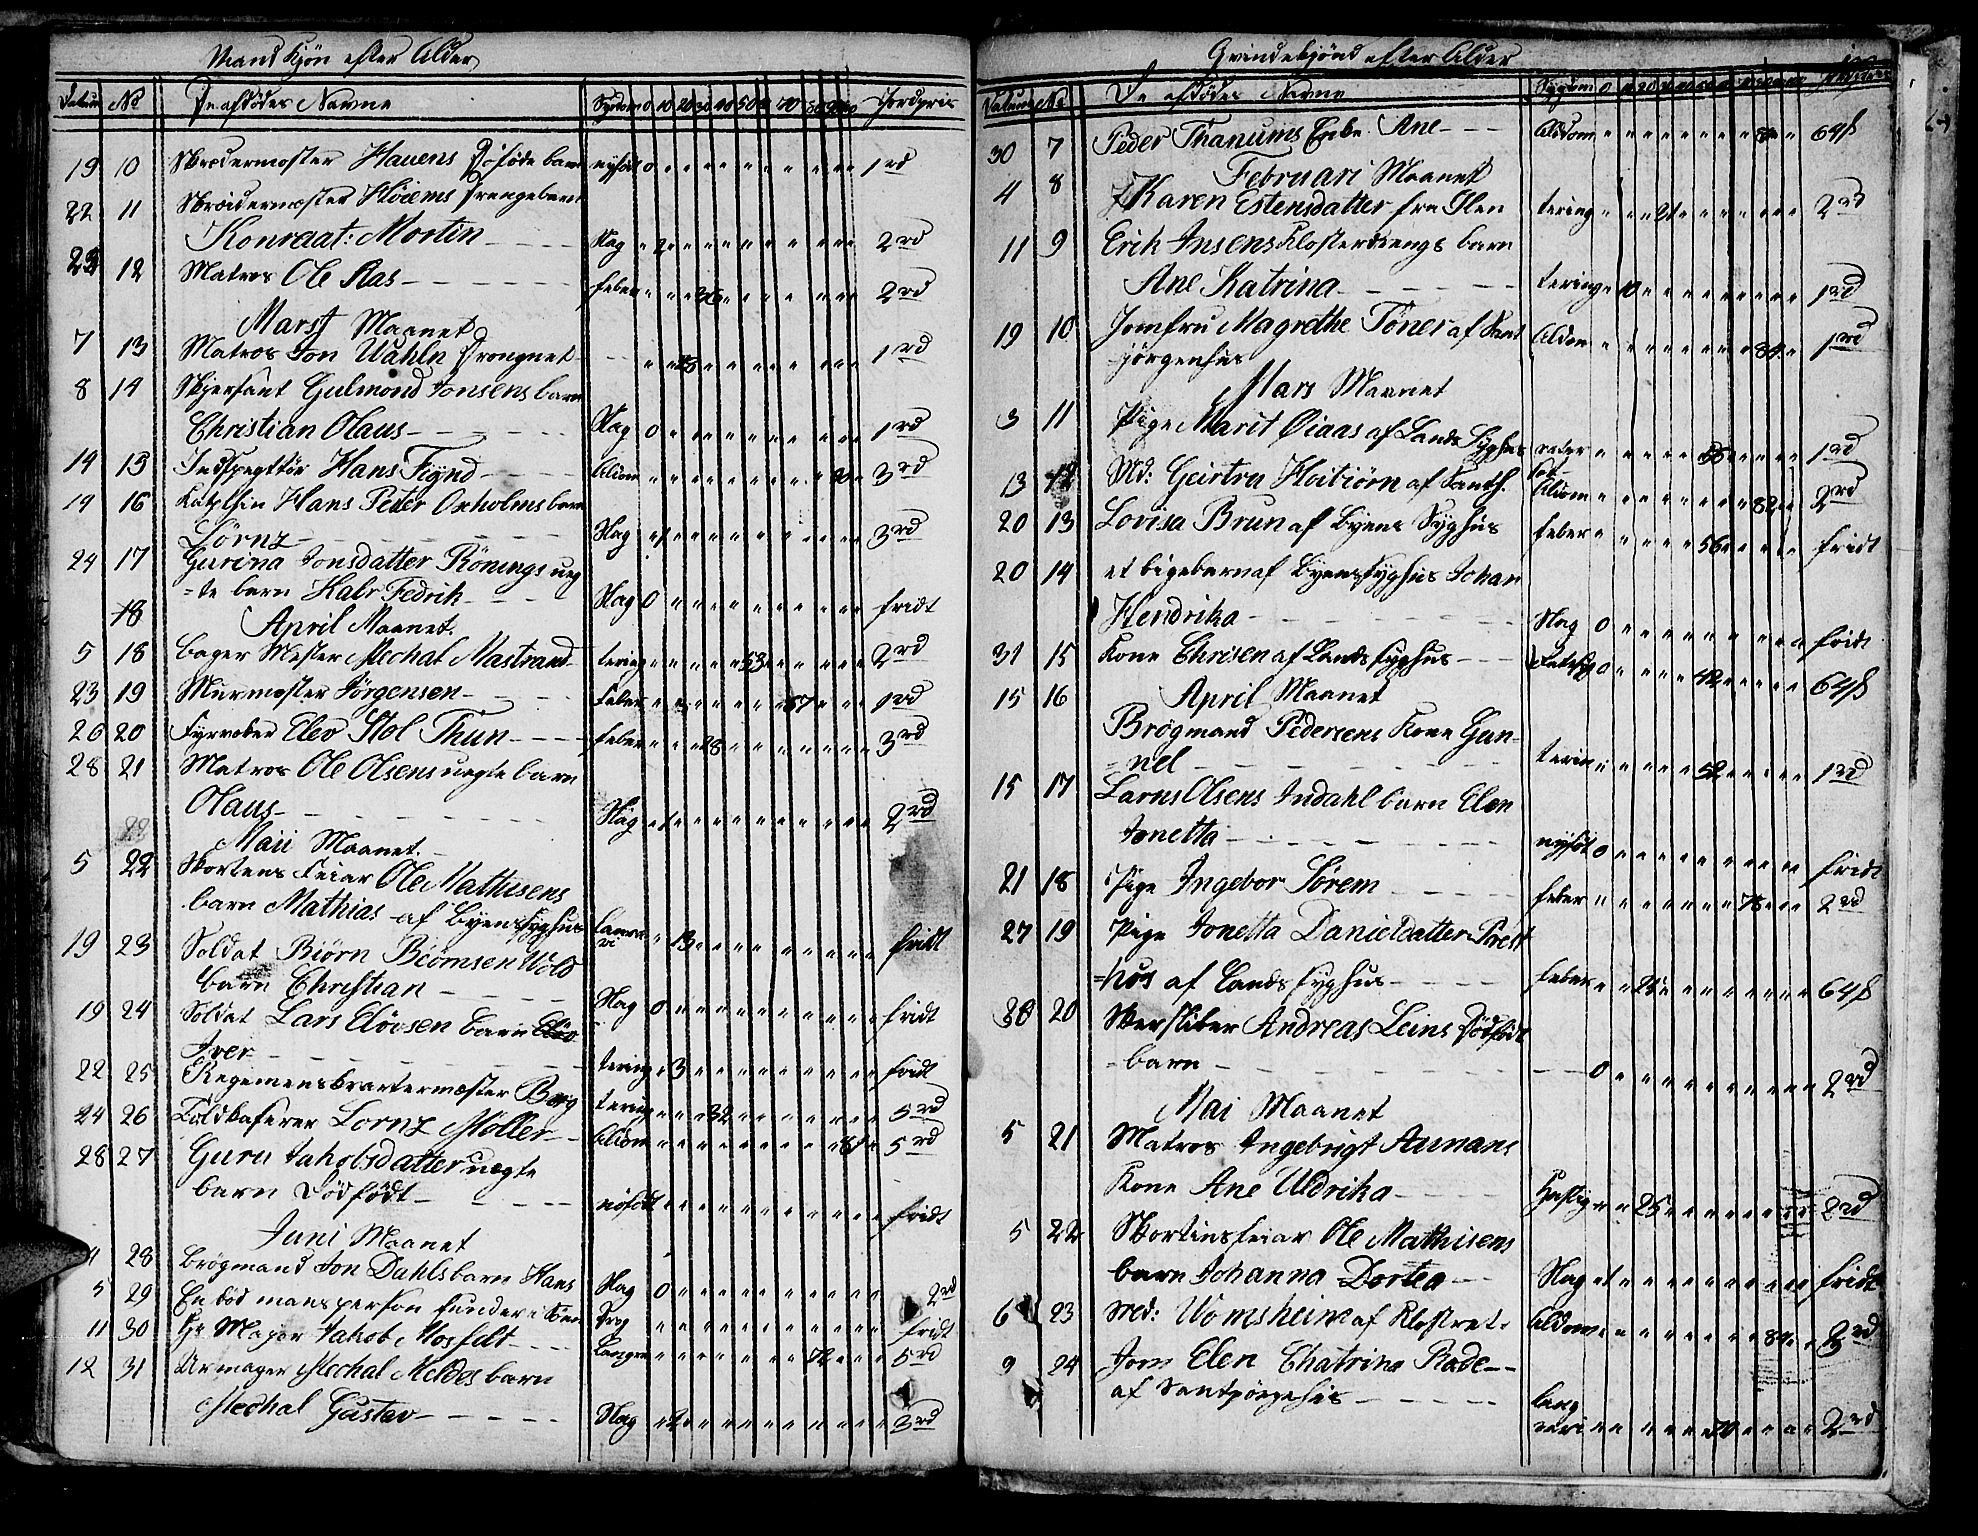 Mandkjøn efter Alder
Datum No De afdødes Navne Sygdom 0 10 20 30 40 50 60 70 80 90 100 Jordpris
19 10 Skredermester Hauens barn nyfødt 0 1rd
22 11 Skreidermester Høiems Drengebarn
Konraat: Mortin Slag 2 2rd
23 12 Matros Ole Aas feber 36 2rd
Marst Maanet
7 13 Matros Jon Wahln 1rd
8 14 Skjersant Gulmond Jonsens barn
Christian Olaus Slag 0 1rd
14 15 Indspegttør Hans Fignd Aldom 3rd
14 16 Hans Peter Oxholms barn
Lørnz Slag 3rd
24 17 Gurina Jonsdatter Rönings ueg
=te barn Kabr Fedrik Slag 0 fridt
18 April Maanet.
5 18 bager Mester Mechal Mastrand tering 53 2rd
23 19 Murmester Jørgensen Feber 67 1rd
26 20 Fyrvober Elev Stol Thun feber 28 3rd
28 21 Matros Ole Olsens uegte barn
Olaus Slag 2rd
22 Maii Maanet.
5 22 Skortens Feiar Ole Mathisens
barn Mathias af Byens syghus 13 fridt
19 23 Soldat Biörn Beomsen Wold
barn Christian Slag 0 fridt
19 24 Soldat Lars Elövsen barn
Iver tering 3 fridt
22 25 Regemenskvartermester Berg tering 32 5rd
24 26 Toldkaserer Lornz Møller Aldom 81 5rd
28 27 Guru Jakobsdatter uegte
barn Dödfödt nöfödt fridt
Juni Maanet
4 28 Brögmand Jon Dahls barn Hans Slag 0 2rd
5 29 En död mansperson funden i fridt
11 30 Hr Major Jakob Mosfeldt 72 5rd
12 31 Urmager Mechal Meldes barn
Mechal Gustav Slag 2 3rd
Qvindekjönd efter Alder
Datum No De afdødes Navne Sygdom 0 10 20
30 7 Peder Thanums Enke Ane Aldom 64ß
Februari Maanet
4 8 Karen Estensdatter fra Ilen tering 21 2rd
11 9 Erik Insens Klosterdrengs barn
Ane Katrina tering 10 1rd
19 10 Jomfru Magrethe Töner af Sant
jørgenhus Aldom 84 1rd
Mars Maanet
3 11 Pige Marit Øiaas af Lands Syghus 58 1rd
13 12 Md: Geirtru Hoitiörn af Santh. Aldom 82 2rd
20 13 Lovisa Brun af Byens Syghus feber 56 fridt
20 14 et bigebarn af Byens syghus Johan
Hendrika Slag 0 fridt
31 15 Kone Chrisen af Lands syghus 42 64ß
15 16 April Maanet
Brøgmand Pedersens Kone Gun-
nel terin 52 1rd
15 17 Larns Olsens Indahl barn Elen
Jonetta nyföt 0 fridt
21 18 Pige Ingebor Sörem feber 75 2rd
27 19 Pige Jonetta Danieldatter Prest
=hus af Lands syghus feber 25 64ß
30 20 Skersliber Andreas Leins Dödfödt
-barn 0 2rd
Mai Maanet
5 21 Matros Ingebrigt Aunans
Kone Ane Uldrika Hastig 25 2rd
5 22 Skortinsfeiar Ole Mathisens
barn Johanna Dortea Slag 1 fridt
6 23 Md: Womsheim af Klostret Aldom 84 3rd
9 24 Jom Elen Chatrina Rode
af Santjörgehus 70 2rd